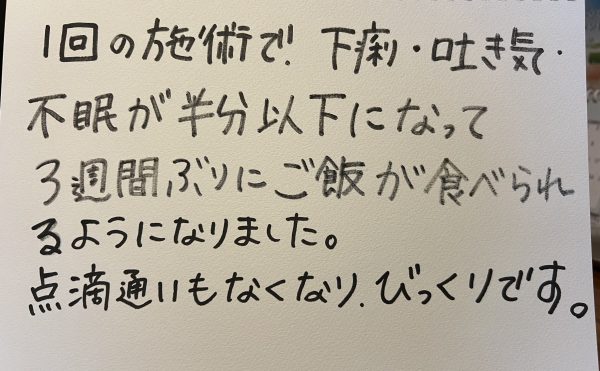 1回の施術で、下痢・吐き気・
不眠が半分以下になって
3週間ぶりにご飯が食べられ
るようになりました。
点滴通いもなくなり、びっくりです。